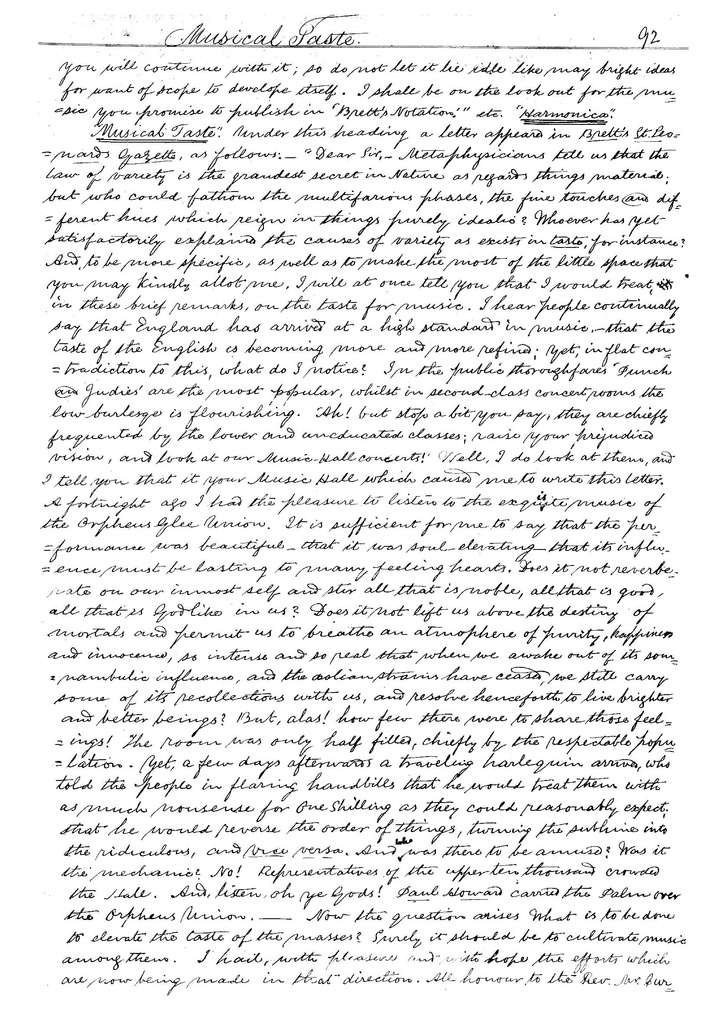 Musical Taste. 92
you will contenue with it; so do not let it lie idle like may bright ideas
for want of scope to develope itself. I shall be on the look out for the mu-
=sic you promise to publish in "Brett's Notation," etc. "Harmonica".
"Musical Taste". Under this heading a letter appeared in Brett's St. Leo-
=nards Gazette, as follows:— "Dear Sir,— Metaphysicians tell us that the
law of variety is the grandest secret in Nature as regards things material;
but who could fathom the multifarious phases, the fine touches and dif-
=ferent hues which reign in things purely idealic? Whoever has yet
satisfactorily explained the causes of variety as exists in taste, for instance?
And, to be more specific, as well as to make the most of the little space that
you may kindly allot me, I will at once tell you that I would treat,
in these brief remarks, on the taste for music. I hear people continually
say that England has arrived at a high standard in music,—that the
taste of the English is becoming more and more refined; yet, in flat con-
=tradiction to this, what do I notice? In the public thoroughfares 'Punch
an Judies' are the most popular, whilst in second-class concert rooms the
low burlesqe is flourishing. 'Ah! but stop a bit you say, they are chiefly
frequented by the lower and uneducated classes; raise your prejudiced
vision, and look at our Music-Hall concerts!' Well, I do look at them, and
I tell you that it your Music Hall which caused me to write this letter.
A fortnight ago I had the pleasure to listen to the exquisite music of
the Orpheus Glee Union. It is sufficient for me to say that the per-
=formance was beautiful—that it was soul-elevating—that its influ-
=ence must be lasting to many feeling hearts. Does it not reverbe-
rate on our inmost self and stir all that is noble, all that is good,
all that is Godlike in us? Does it not lift us above the destiny of
mortals and permit us to breathe an atmosphere of purity, happiness
and innocence, so intense and so real that when we awake out of its som-
=nambulic influence, and the æolian strains have ceased, we still carry
some of its recollections with us, and resolve henceforth to live brighter
and better beings? But, alas! how few there were to share those feel-
=ings! The room was only half filled, chiefly by the respectable popu-
=lation. Yet, a few days afterwards a traveling harlequin arrived, who
told the people in flaring handbills that he would treat them with
as much nonsense for One Shilling as they could reasonably expect;
that he would reverse the order of things, turning the sublime into
the ridiculous, and vice versa. And who was there to be amused? Was it
the mechanic? No! Representatives of the upper ten thousand crowded
the Hale. And, listen, oh ye Gods! Paul Howard carried the Palm over
the Orpheus Union. — Now the question arises What is to be done
to elevate the taste of the masses? Surely it should be to cultivate music
among them. I hail, with pleasure and with hope the efforts which
are now being made in that direction. All honour to the Rev. Mr. Tur-